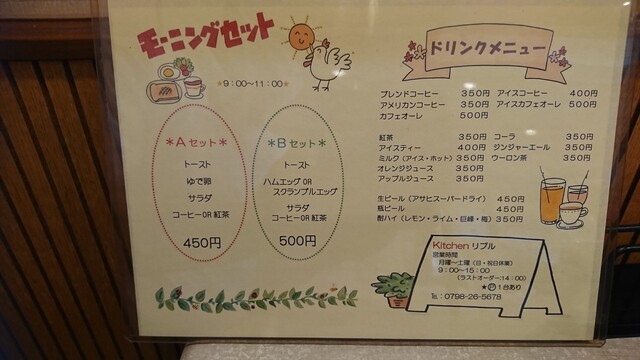 モーニングセット
★9:00〜11:00★
＊Aセット＊
トースト
ゆで卵
サラダ
コーヒーOR紅茶
450円
＊Bセット＊
トースト
ハムエッグOR
スクランブルエッグ
サラダ
コーヒーOR紅茶
500円
ドリンクメニュー
ブレンドコーヒー 350円 アイスコーヒー 400円
アメリカンコーヒー 350円 アイスカフェオーレ 500円
カフェオーレ 500円
紅茶 350円 コーラ 350円
アイスティー 400円 ジンジャーエール 350円
ミルク(アイス・ホット) 350円 ウーロン茶 350円
オレンジジュース 350円
アップルジュース 350円
生ビール(アサヒスーパードライ) 450円
瓶ビール 450円
酎ハイ(レモン・ライム・巨峰・梅) 350円
Kitchen リブル
営業時間
月曜〜土曜(日・祝日休業)
9:00〜15:00
(ラストオーダー:14:00)
★Ⓟ1台あり
℡:0798-26-5678